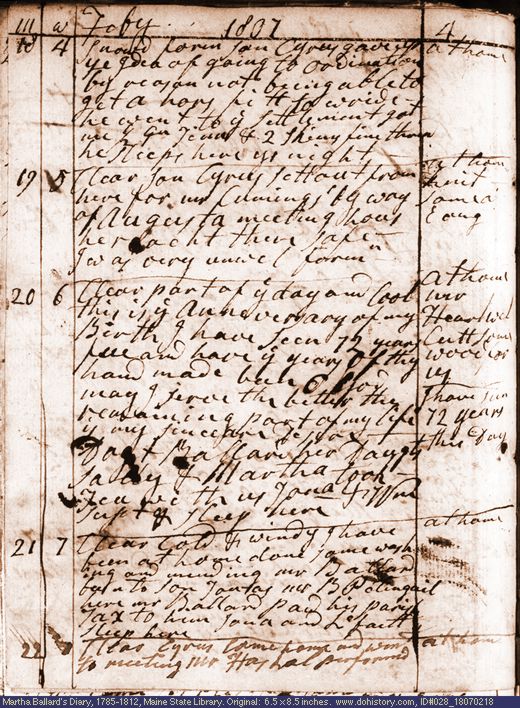 m w Feby. 1807 4
18 4 Snowd forin Son Cyrus gave up at home
ye Idea of going to ordination
by reason not being able to
get a hors fitt to ride
he went to ye Settlement got
me 1 gn Tenn & 2 Skins fine thread
he Sleeps here this night
19 5 Clear Son Cyrus Sett out from at home
here for mr Cumings by way
of Augusta meeting hous
her reacht there safe
I was very unwel forin
20 6 Clear part of ye day and Cool at home
this is ye Anniversary of my mr
Birth I have Seen 72 years Heartwel
Cutt some
wood for
us
and have ye years of thy
hand made been O Lord
may I serve the better the I have Seen
remaining part of my life 72 years
is my sincere desire this Day
Dagt Ballard her Daugt
Sally & Martha took
Tea with us Jona
Supt & Sleep here
21 7 Clear Cold & windy I have at home
been at home done some wash
ing and mending mr Ballard
been to Son Jonas mr B Petingail
here mr Ballard paid his parish
Tax to him Jona and
Sleep here
22 Clear Cyrus Came home and went at home
to meeting mr Haskal performd
Martha Ballard's Diary, 1785-1812, Maine State Library. Original: 6.5 x 8.5 inches. www.dohistory.com, ID#028_18070218